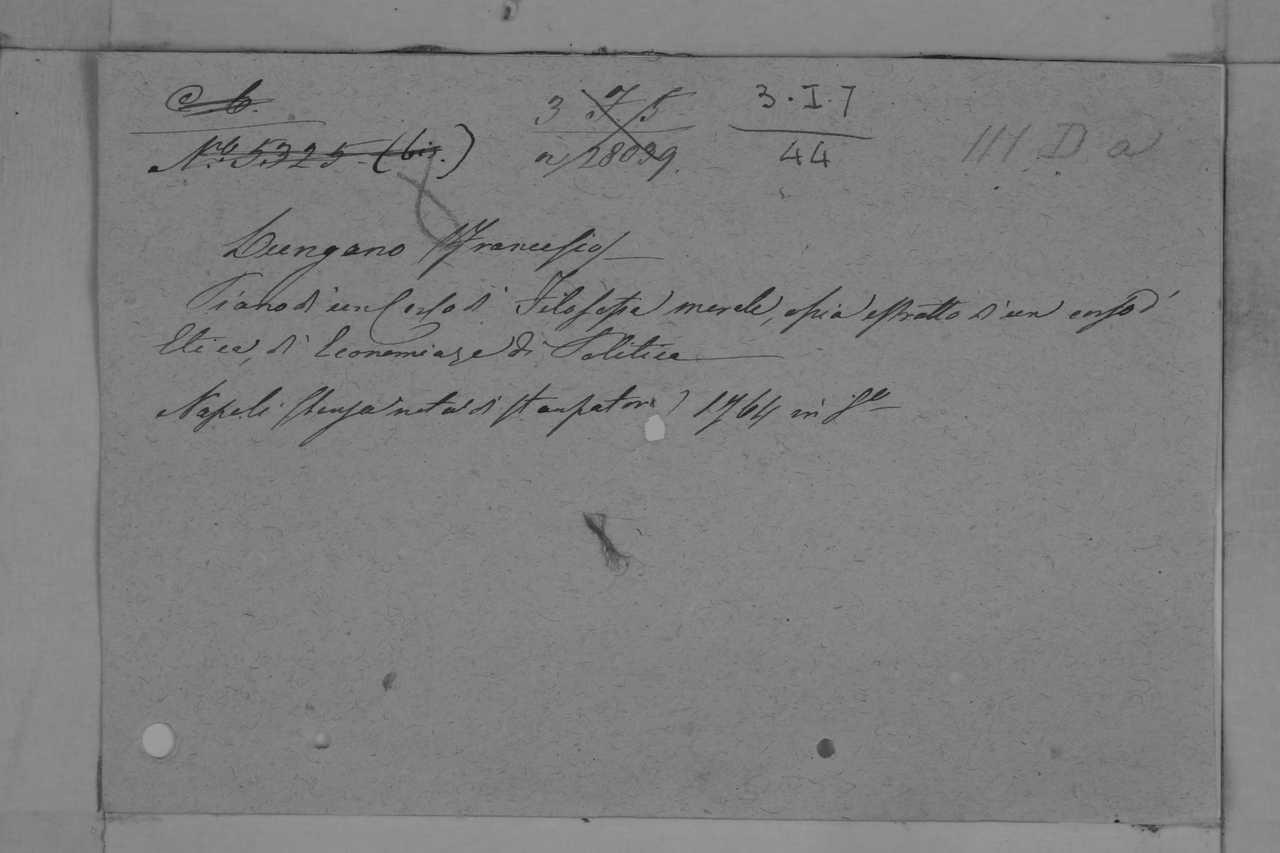 N.ro 5325 (bis.)
3 7 5
28039.
3.I.7
44
III D a
Lungano Francesco
Piano di un Corso di Filosofia morale, ossia estratto di un corso d'
Etica, di Economia, e di Politica
Napoli (senza nota di stampatore) 1764 in 8º